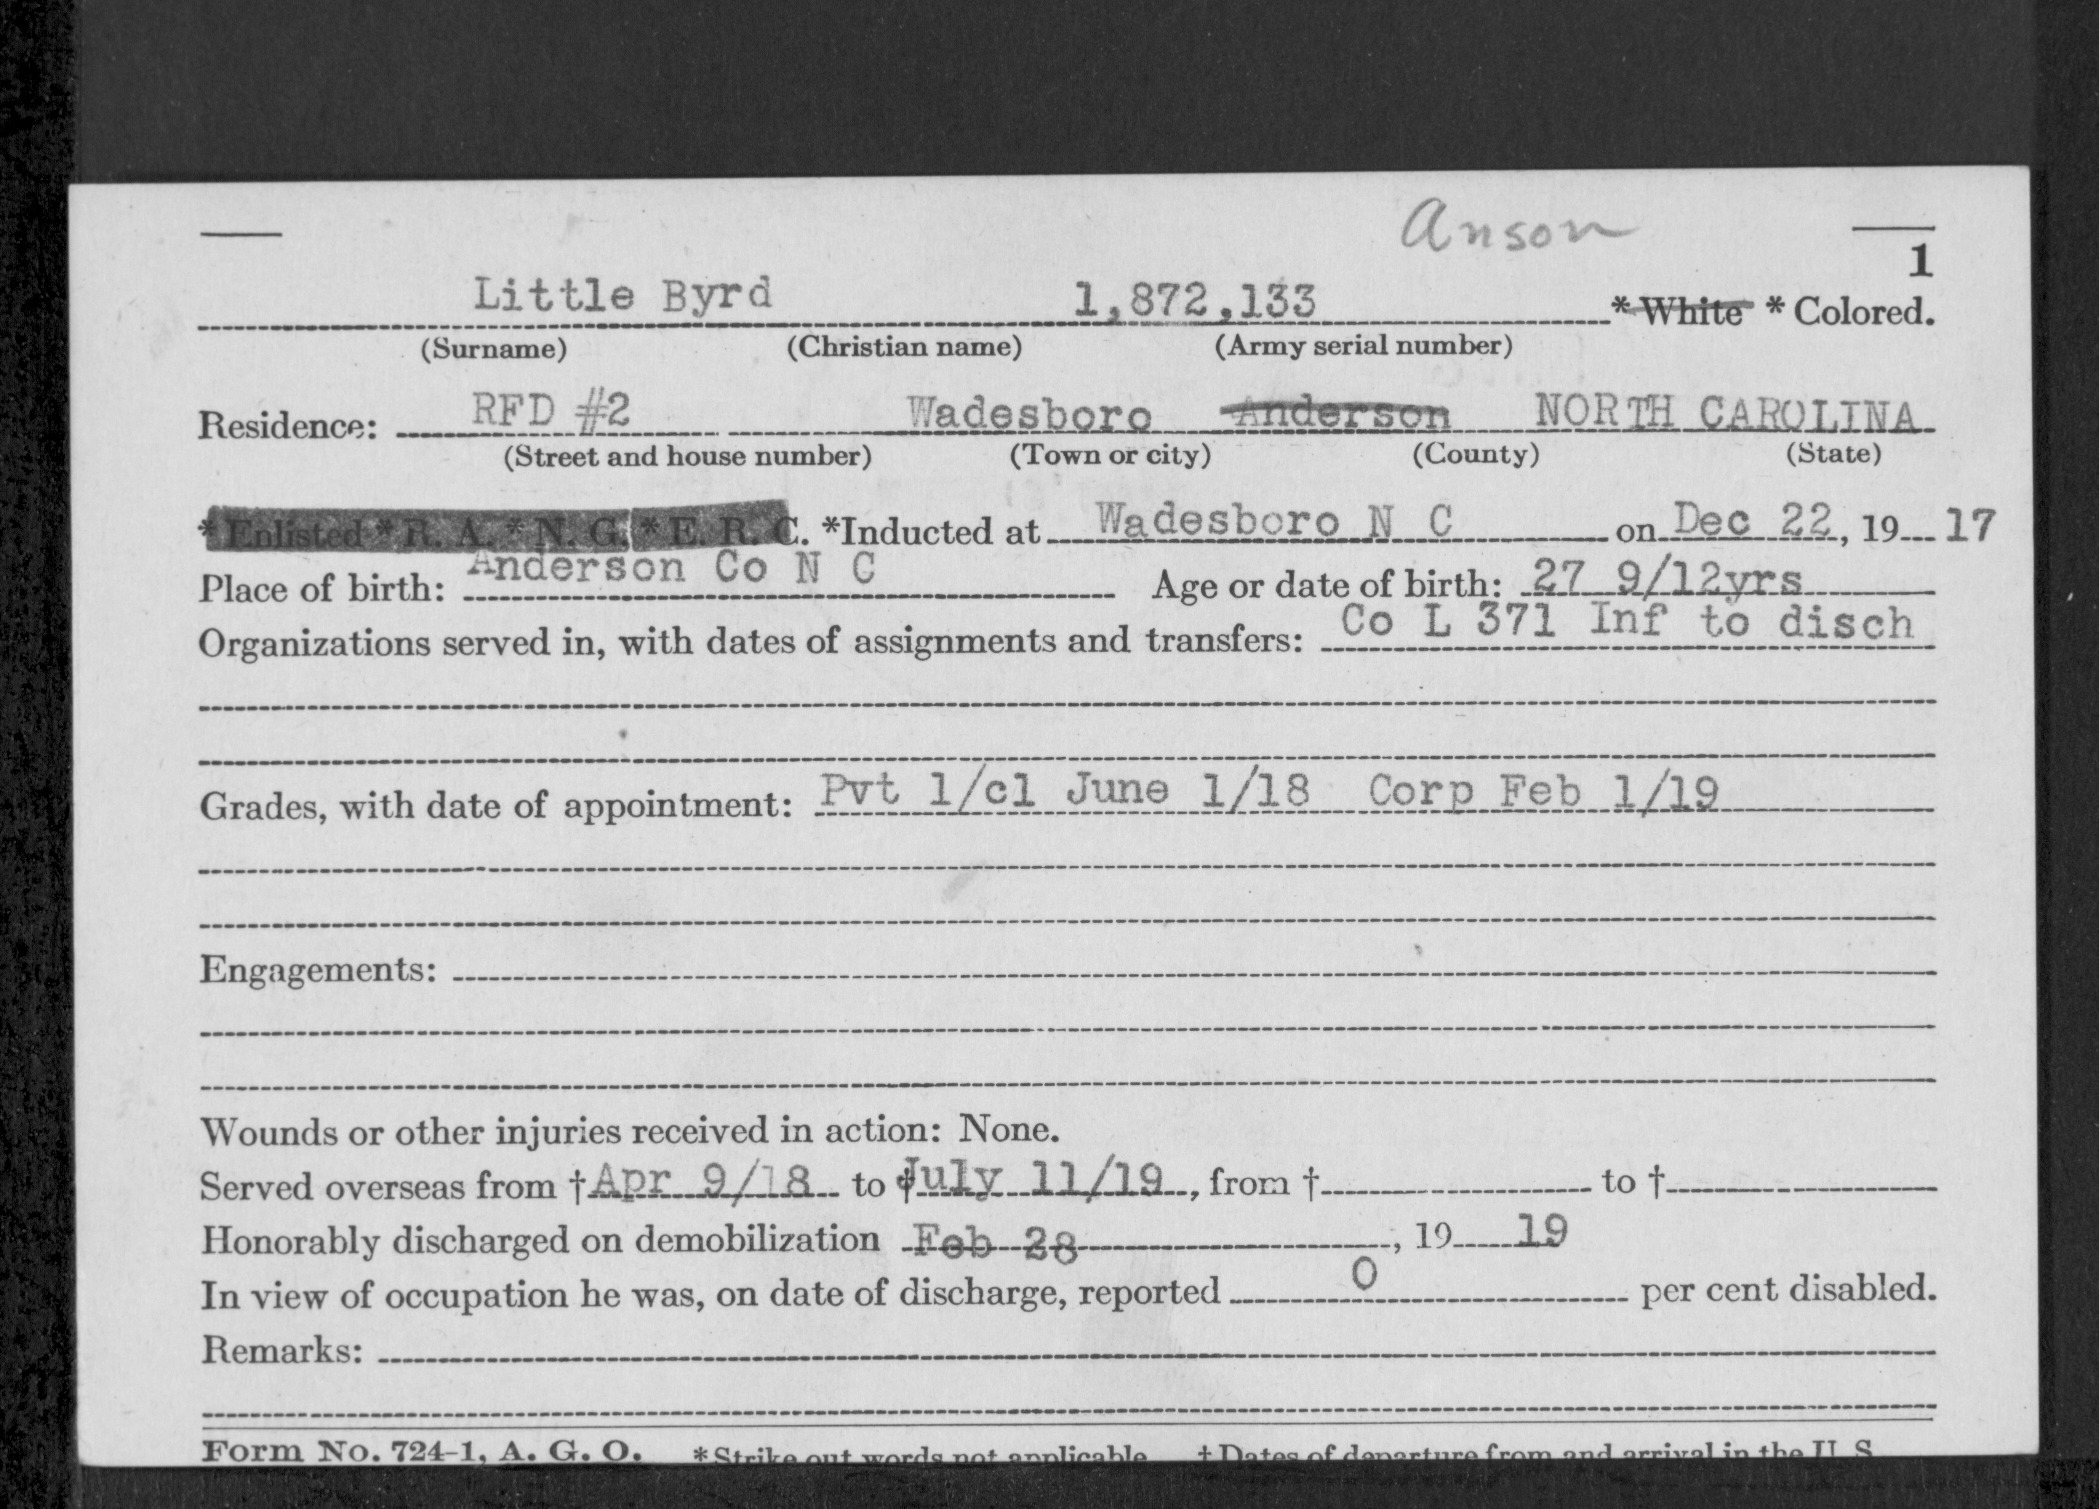 Anson
1
Little Byrd 1,872,133 * White * Colored.
(Surname) (Christian name) (Army serial number)
Residence: RFD #2 Wadesboro Anderson NORTH CAROLINA
(Street and house number) (Town or city) (County) (State)
* Enlisted * R. A. * N. G. * E. R. C. *Inducted at Wadesboro N C on Dec 22, 19 17
Place of birth: Anderson Co N C Age or date of birth: 27 9/12yrs
Organizations served in, with dates of assignments and transfers: Co L 371 Inf to disch
Grades, with date of appointment: Pvt 1/cl June 1/18 Corp Feb 1/19
Engagements:
Wounds or other injuries received in action: None.
Served overseas from † Apr 9/18 to † July 11/19, from † to †
Honorably discharged on demobilization Feb 28, 19 19
In view of occupation he was, on date of discharge, reported 0 per cent disabled.
Remarks:
Form No. 724-1, A. G. O. *Strike out words not applicable † Dates of departure from and arrival in the U S